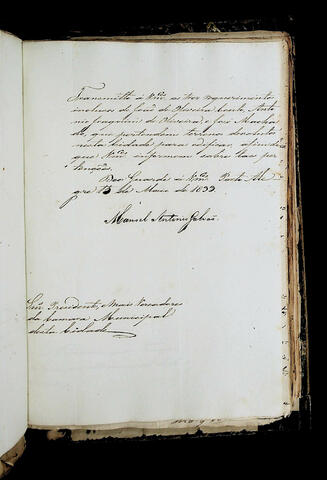 Transmitto á Vmces os tres requerimentos
inclusos de João de Oliveira Couto, Anto-
nio Joaquim de Oliveira e José Macha-
do, que pertendem terreno devoluto
nesta Cidade para edificar, afim de
que Vmces informem sobre taes per-
tenções.
Deos Guarde á Vmces Porto Ale-
gre 13 de Maio de 1832
Manoel Antonio Galvão
Snr Presidente, e mais Vereadores
da Camara Municipal
desta Cidade